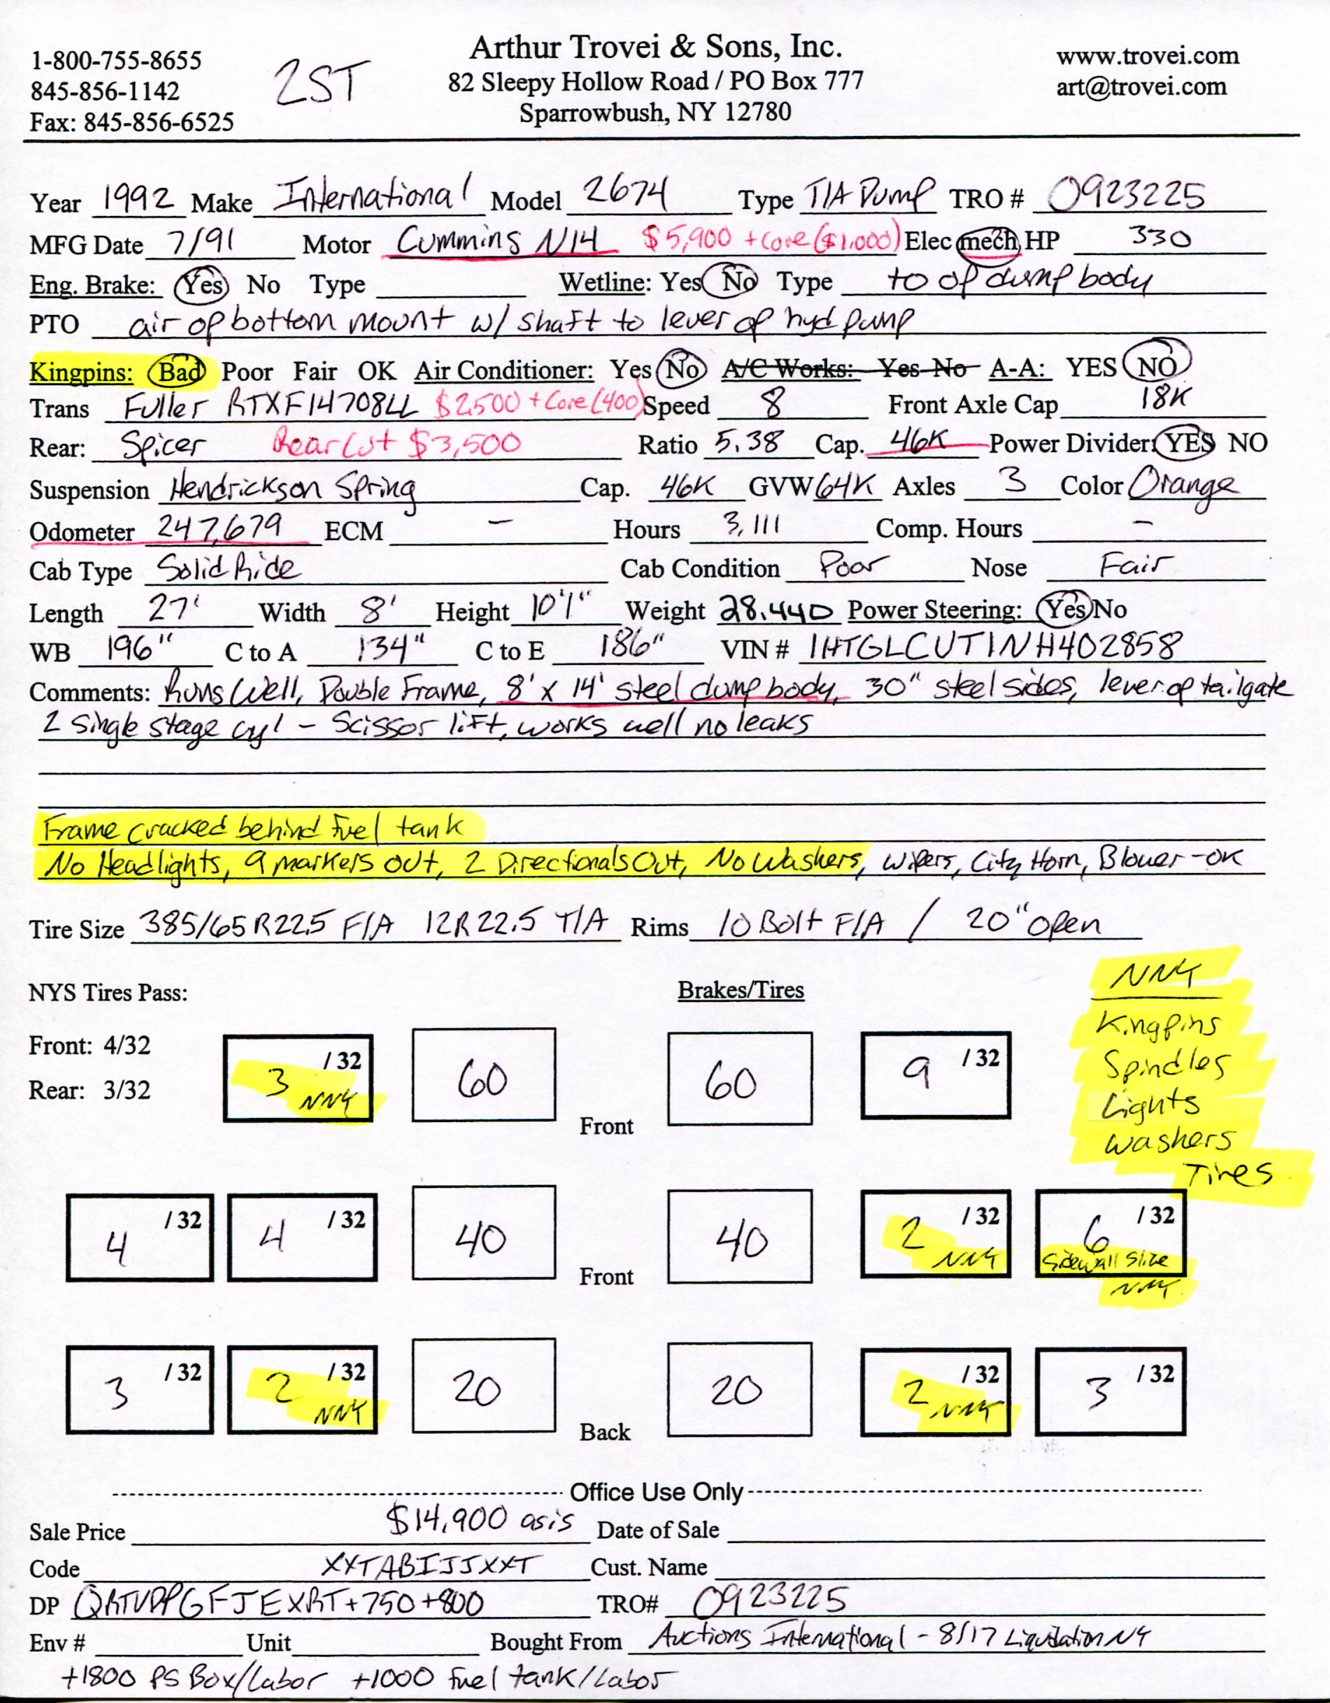 1-800-755-8655
845-856-1142
Fax: 845-856-6525
2ST
Arthur Trovei & Sons, Inc.
82 Sleepy Hollow Road / PO Box 777
Sparrowbush, NY 12780
www.trovei.com
art@trovei.com
Year 1992 Make International Model 2674 Type T/A Dump TRO # 0923225
MFG Date 7/91 Motor Cummins N14 $5,900 + Core ($1,000) Elec mech HP 330
Eng. Brake: Yes No Type Wetline: Yes No Type to op dump body
PTO air op bottom mount w/ shaft to lever op hyd pump
Kingpins: Bad Poor Fair OK Air Conditioner: Yes No A/C Works: Yes No A-A: YES NO
Trans Fuller RTXF14708LL $2,500 + Core (400) Speed 8 Front Axle Cap 18K
Rear: Spicer Rear Cut $3,500 Ratio 5.38 Cap. 46K Power Divider: YES NO
Suspension Hendrickson Spring Cap. 46K GVW 64K Axles 3 Color Orange
Odometer 247,679 ECM - Hours 3,111 Comp. Hours -
Cab Type Solid Ride Cab Condition Poor Nose Fair
Length 27' Width 8' Height 10'1" Weight 28,440 Power Steering: Yes No
WB 196" C to A 134" C to E 186" VIN # 1HTGLCUT1NH402858
Comments: Runs Well, Double Frame, 8' x 14' steel dump body, 30" steel sides, lever op tailgate
2 single stage cyl - Scissor lift, works well no leaks
Frame cracked behind fuel tank
No Headlights, 9 markers out, 2 Directionals Out, No Washers, wipers, City Horn, Blower - OK
Tire Size 385/65R22.5 F/A 12R22.5 T/A Rims 10 Bolt F/A / 20" open
NYS Tires Pass:
Front: 4/32
Rear: 3/32
Brakes/Tires
NNY
Kingpins
Spindles
Lights
Washers
Tires
3 /32 NNY 60 Front 60 9 /32
4 /32 4 /32 40 Front 40 2 /32 NNY 6 /32 Sidewall Slice NNY
3 /32 2 /32 NNY 20 Back 20 2 /32 NNY 3 /32
Office Use Only
Sale Price $14,900 as is Date of Sale
Code XXTABIJJXXT Cust. Name
DP QRTVDPGFJEXRT+750+800 TRO# 0923225
Env # Unit Bought From Auctions International - 8/17 Liquidation NY
+1800 PS Box/Labor +1000 fuel tank/Labor